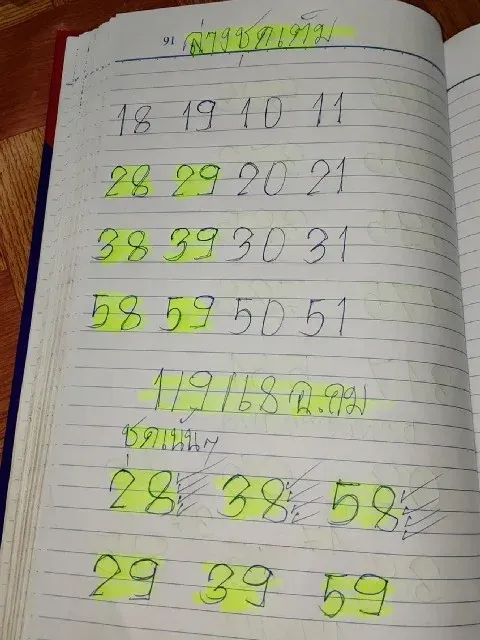 91 ล่างชุดเต็ม
18 19 10 11
28 29 20 21
38 39 30 31
58 59 50 51
119/168 ฉ.ถม
ชุดเน้นๆ
28 38 58
29 39 59